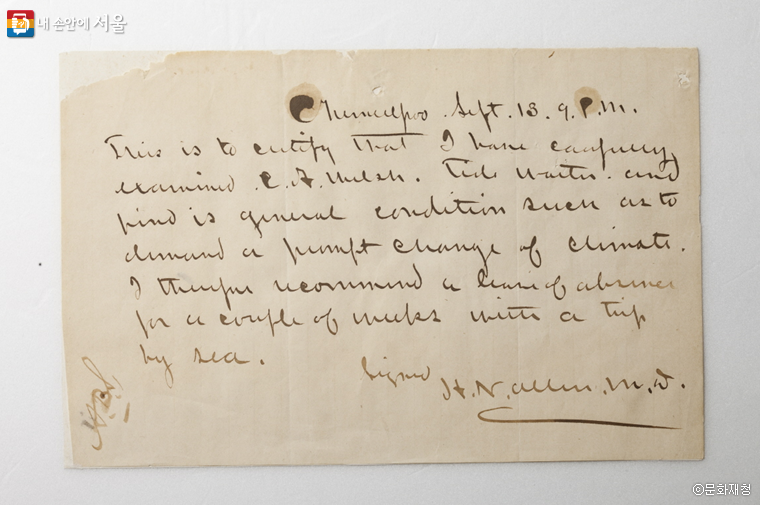 내 손안에 서울
Chemulpoo. Sept. 13. 9. P.M.
This is to certify that I have carefully
examined C. A. Welsh. Tide Waiter. and
find is general condition such as to
demand a prompt change of climate.
I therefore recommend a leave of absence
for a couple of weeks with a trip
by sea.
Signed H. N. Allen. M.D.
©문화재청